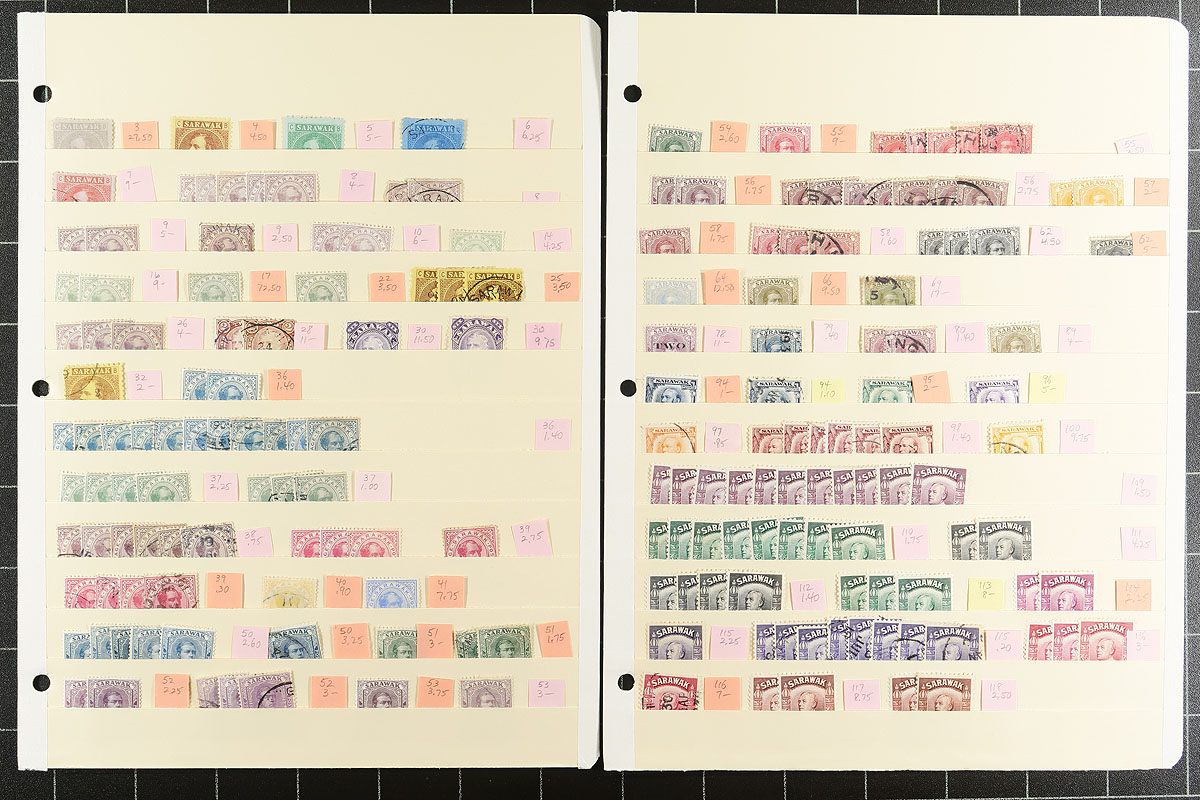 SARAWAK
3
27.50
SARAWAK
4
4.50
SARAWAK
5
5-
SARAWAK
6
6.25
7
9-
8
4-
8
9
5-
9
2.50
10
6-
14
4.25
16
9-
17
72.50
22
3.50
25
3.50
26
4-
28
11-
30
11.50
30
9.75
32
2-
36
1.40
36
1.40
37
2.25
37
1.00
38
.75
39
2.75
39
.30
40
.90
41
7.75
50
2.60
50
3.25
51
3-
51
1.75
52
2.25
52
3-
53
3.75
53
3-
SARAWAK
54
2.60
SARAWAK
55
9-
SARAWAK
55
56
1.75
56
2.75
57
2-
58
1.75
58
1.60
62
4.50
62
5-
64
12.50
66
9.50
69
17-
TWO
78
11-
79
.40
80
1.40
84
4-
SARAWAK
94
1-
SARAWAK
94
1.10
SARAWAK
95
2-
SARAWAK
96
5-
SARAWAK
97
.85
SARAWAK
98
1.40
SARAWAK
100
9.75
SARAWAK
109
1.50
SARAWAK
110
1.75
SARAWAK
111
4.25
SARAWAK
112
1.40
SARAWAK
113
8-
SARAWAK
114
2.25
SARAWAK
115
2.25
SARAWAK
115
.20
SARAWAK
116
3-
SARAWAK
116
7-
SARAWAK
117
8.75
SARAWAK
118
2.50